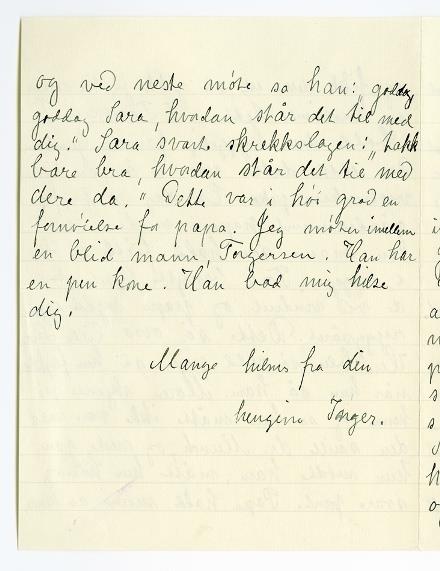 og ved neste møte sa han: „goddag
goddag Sara, hvordan står det til med
dig." Sara svarte skrekkslagen: „takk
bare bra, hvordan står det til med
dere da." Dette var i høi grad en
fornøielse for papa. Jeg møter imellem
en blid mann, Torgersen. Han har
en pen kone. Han bad mig hilse
dig.
Mange hilsner fra din
hengivne Inger.